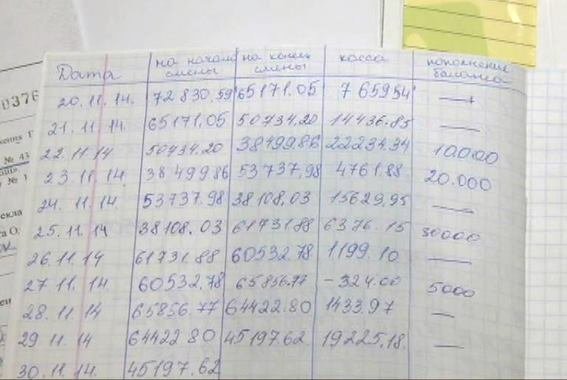 0376
Дата на начало смены на конец смены касса пополнение баланса
20.11.14. 72830,59 65171.05 765954 —
21.11.14. 65171,05 50734.20 14436.85 —
22.11.14 50734.20 3849986 22234.34 10000
23.11.14. 3849986 53737,98 4761.88 20.000
24.11.14 53737.98 38108.03 15629.95 —
25.11.14 38108.03 6173188 6376.15 30000
26.11.14 61731.88 60532.78 1199.10 —
27.11.14. 60532.78 65856.77 -324.00 5000
28.11.14 65856.77 64422.80 1433.97 —
29 11.14 6442280 4519762 19225.18. —
30.11.14. 45197.62